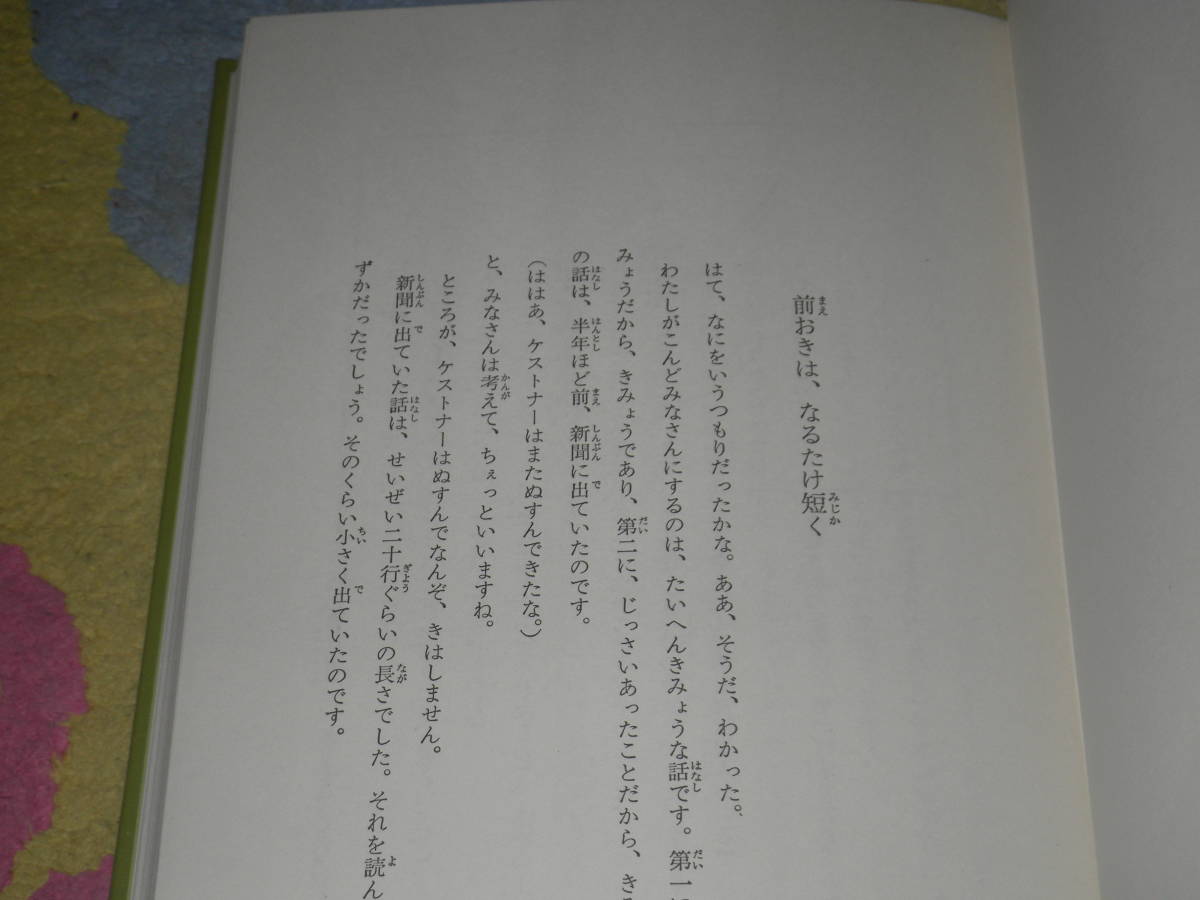 前おきは、なるたけ短く
はて、なにをいうつもりだったかな。ああ、そうだ、わかった。
わたしがこんどみなさんにするのは、たいへんきみょうな話です。第一に
みょうだから、きみょうであり、第二に、じっさいあったことだから、き
の話は、半年ほど前、新聞に出ていたのです。
(ははあ、ケストナーはまたぬすんできたな。)
と、みなさんは考えて、ちぇっといいますね。
ところが、ケストナーはぬすんでなんぞ、きはしません。
新聞に出ていた話は、せいぜい二十行ぐらいの長さでした。それを読ん
ずかだったでしょう。そのくらい小さく出ていたのです。